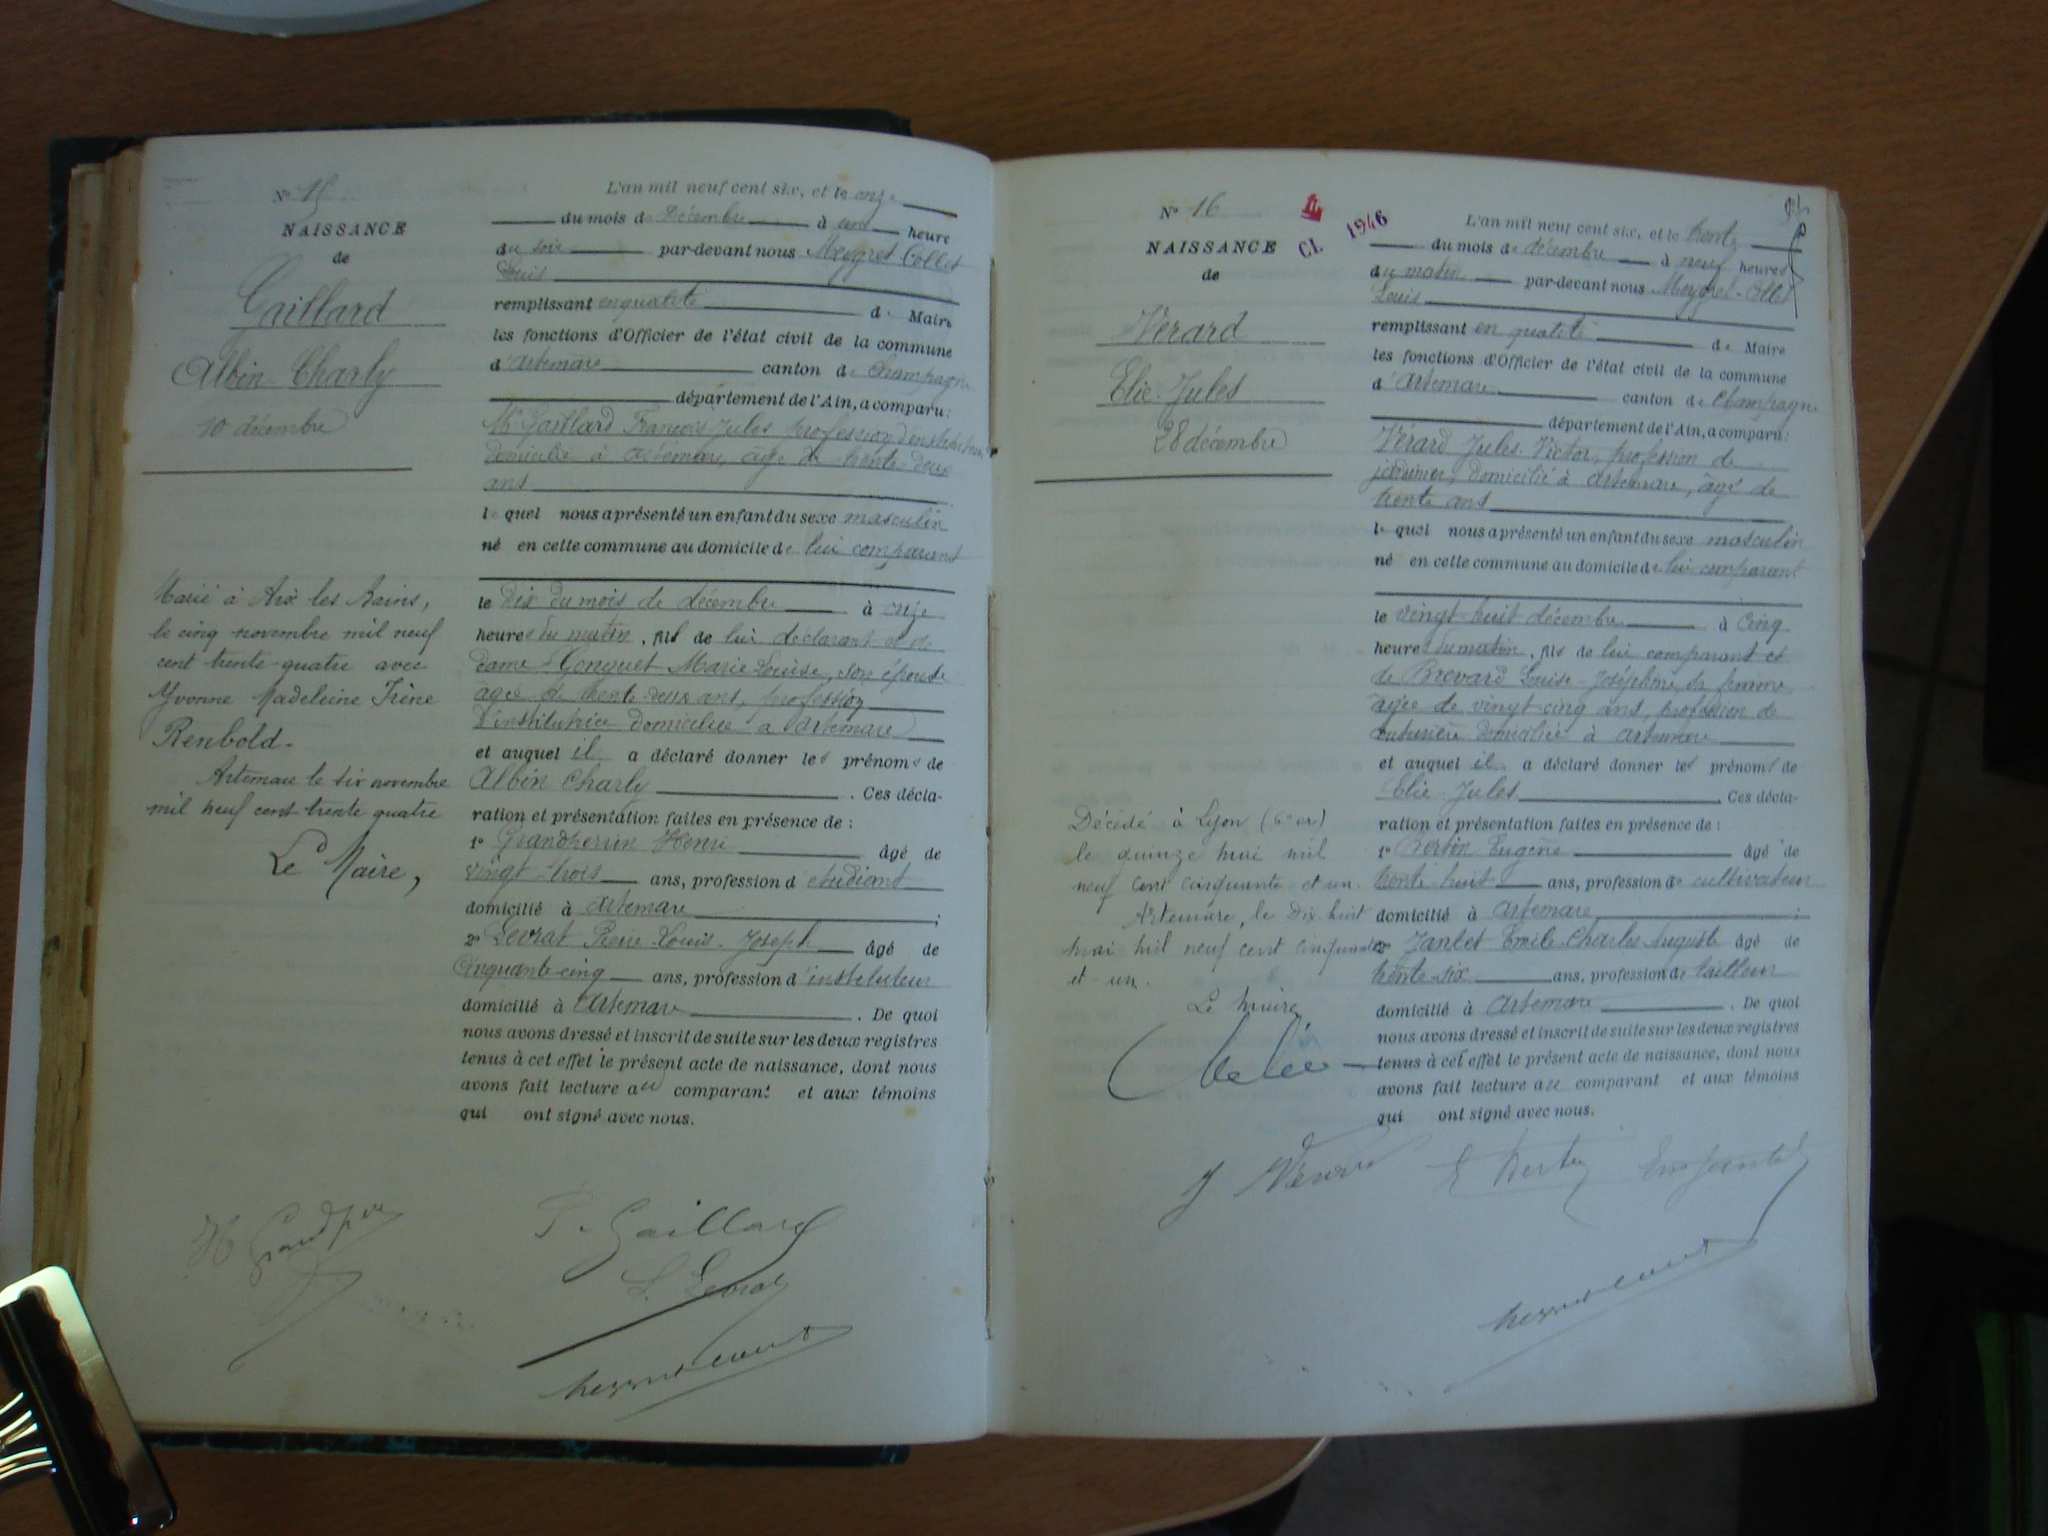 Nº 15
NAISSANCE
de
Gaillard
Albin Charly
10 décembre
Marié à Aix les Bains,
le cinq novembre mil neuf
cent trente quatre avec
Yvonne Madeleine Irène
Renbold.
Artemare le six novembre
mil neuf cent trente quatre
Le Maire,
L'an mil neuf cent six, et le onze
du mois de Décembre à une heure
du soir par-devant nous Meygret-Collet
Louis
remplissant en qualité de Maire
les fonctions d'Officier de l'état civil de la commune
d'Artemare canton de Champagne
département de l'Ain, a comparu:
Mr Gaillard François Jules, profession d'instituteur
domicilié à Artemare, âgé de trente-deux
ans
lequel nous a présenté un enfant du sexe masculin
né en cette commune au domicile de lui comparant
le dix du mois de décembre à onze
heures du matin, fils de lui déclarant et de
dame Gonguet Marie Louise, son épouse
âgée de trente-deux ans, profession
d'institutrice domiciliée à Artemare
et auquel il a déclaré donner les prénoms de
Albin Charly. Ces décla-
ration et présentation faites en présence de :
1º Grandperrin Henri âgé de
vingt-trois ans, profession d'étudiant
domicilié à Artemare ;
2º Levrat Pierre Louis Joseph âgé de
cinquante-cinq ans, profession d'instituteur
domicilié à Artemare. De quoi
nous avons dressé et inscrit de suite sur les deux registres
tenus à cet effet le présent acte de naissance, dont nous
avons fait lecture au comparant et aux témoins
qui ont signé avec nous.
H Grandperrin
Gaillard
L. Levrat
Nº 16
1946
Cl.
NAISSANCE
de
Vérard
Elie Jules
28 décembre
Décédé à Lyon (6e ar)
le quinze mai mil
neuf cent cinquante et un.
Artemare, le dix huit
mai mil neuf cent cinquante
et un.
Le maire
L'an mil neuf cent six, et le trente
du mois de décembre à neuf heures
du matin par-devant nous Meygret-Collet
Louis
remplissant en qualité de Maire
les fonctions d'Officier de l'état civil de la commune
d'Artemare canton de Champagne
département de l'Ain, a comparu:
Vérard Jules Victor, profession de
jardinier, domicilié à Artemare, âgé de
trente ans
lequel nous a présenté un enfant du sexe masculin
né en cette commune au domicile de lui comparant
le vingt-huit décembre à cinq
heures du matin, fils de lui comparant et
de Brevard Louise-Joséphine, sa femme
âgée de vingt-cinq ans, profession de
couturière domiciliée à Artemare
et auquel il a déclaré donner les prénoms de
Elie Jules. Ces décla-
ration et présentation faites en présence de :
1º Eugène âgé de
trente-huit ans, profession de cultivateur
domicilié à Artemare ;
2º Janlet Emile Charles Auguste âgé de
trente-six ans, profession de tailleur
domicilié à Artemare. De quoi
nous avons dressé et inscrit de suite sur les deux registres
tenus à cet effet le présent acte de naissance, dont nous
avons fait lecture au comparant et aux témoins
qui ont signé avec nous.